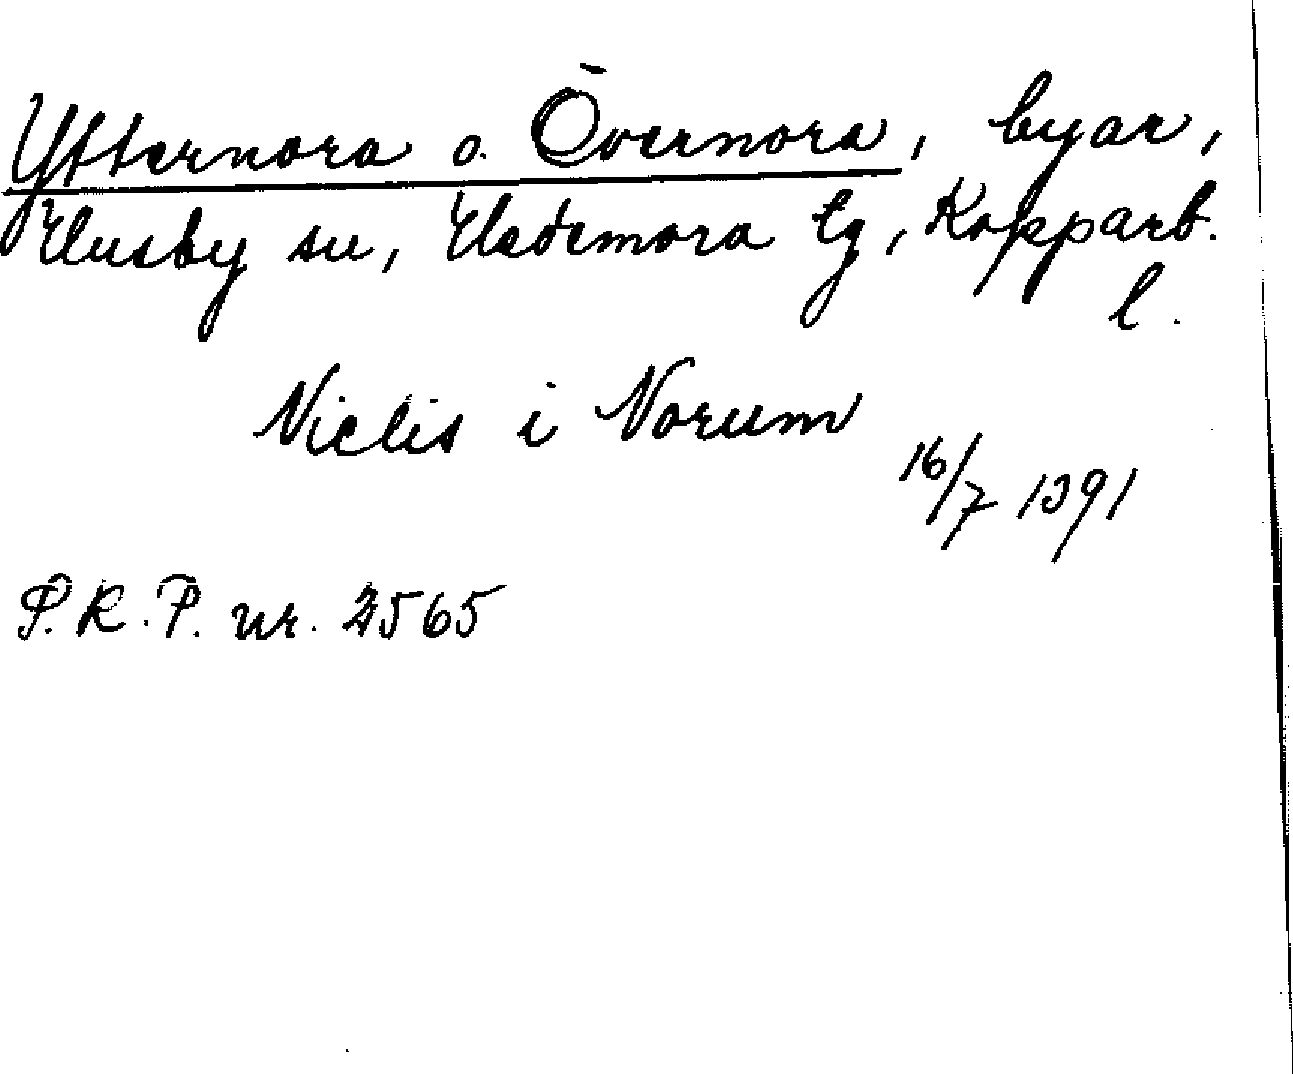 Ytternora o. Övernora, byar,
Husby sn, Hedemora tg, Kopparb.
l.
Niclis i Norum
16/7 1391
P.R.P. nr. 2565